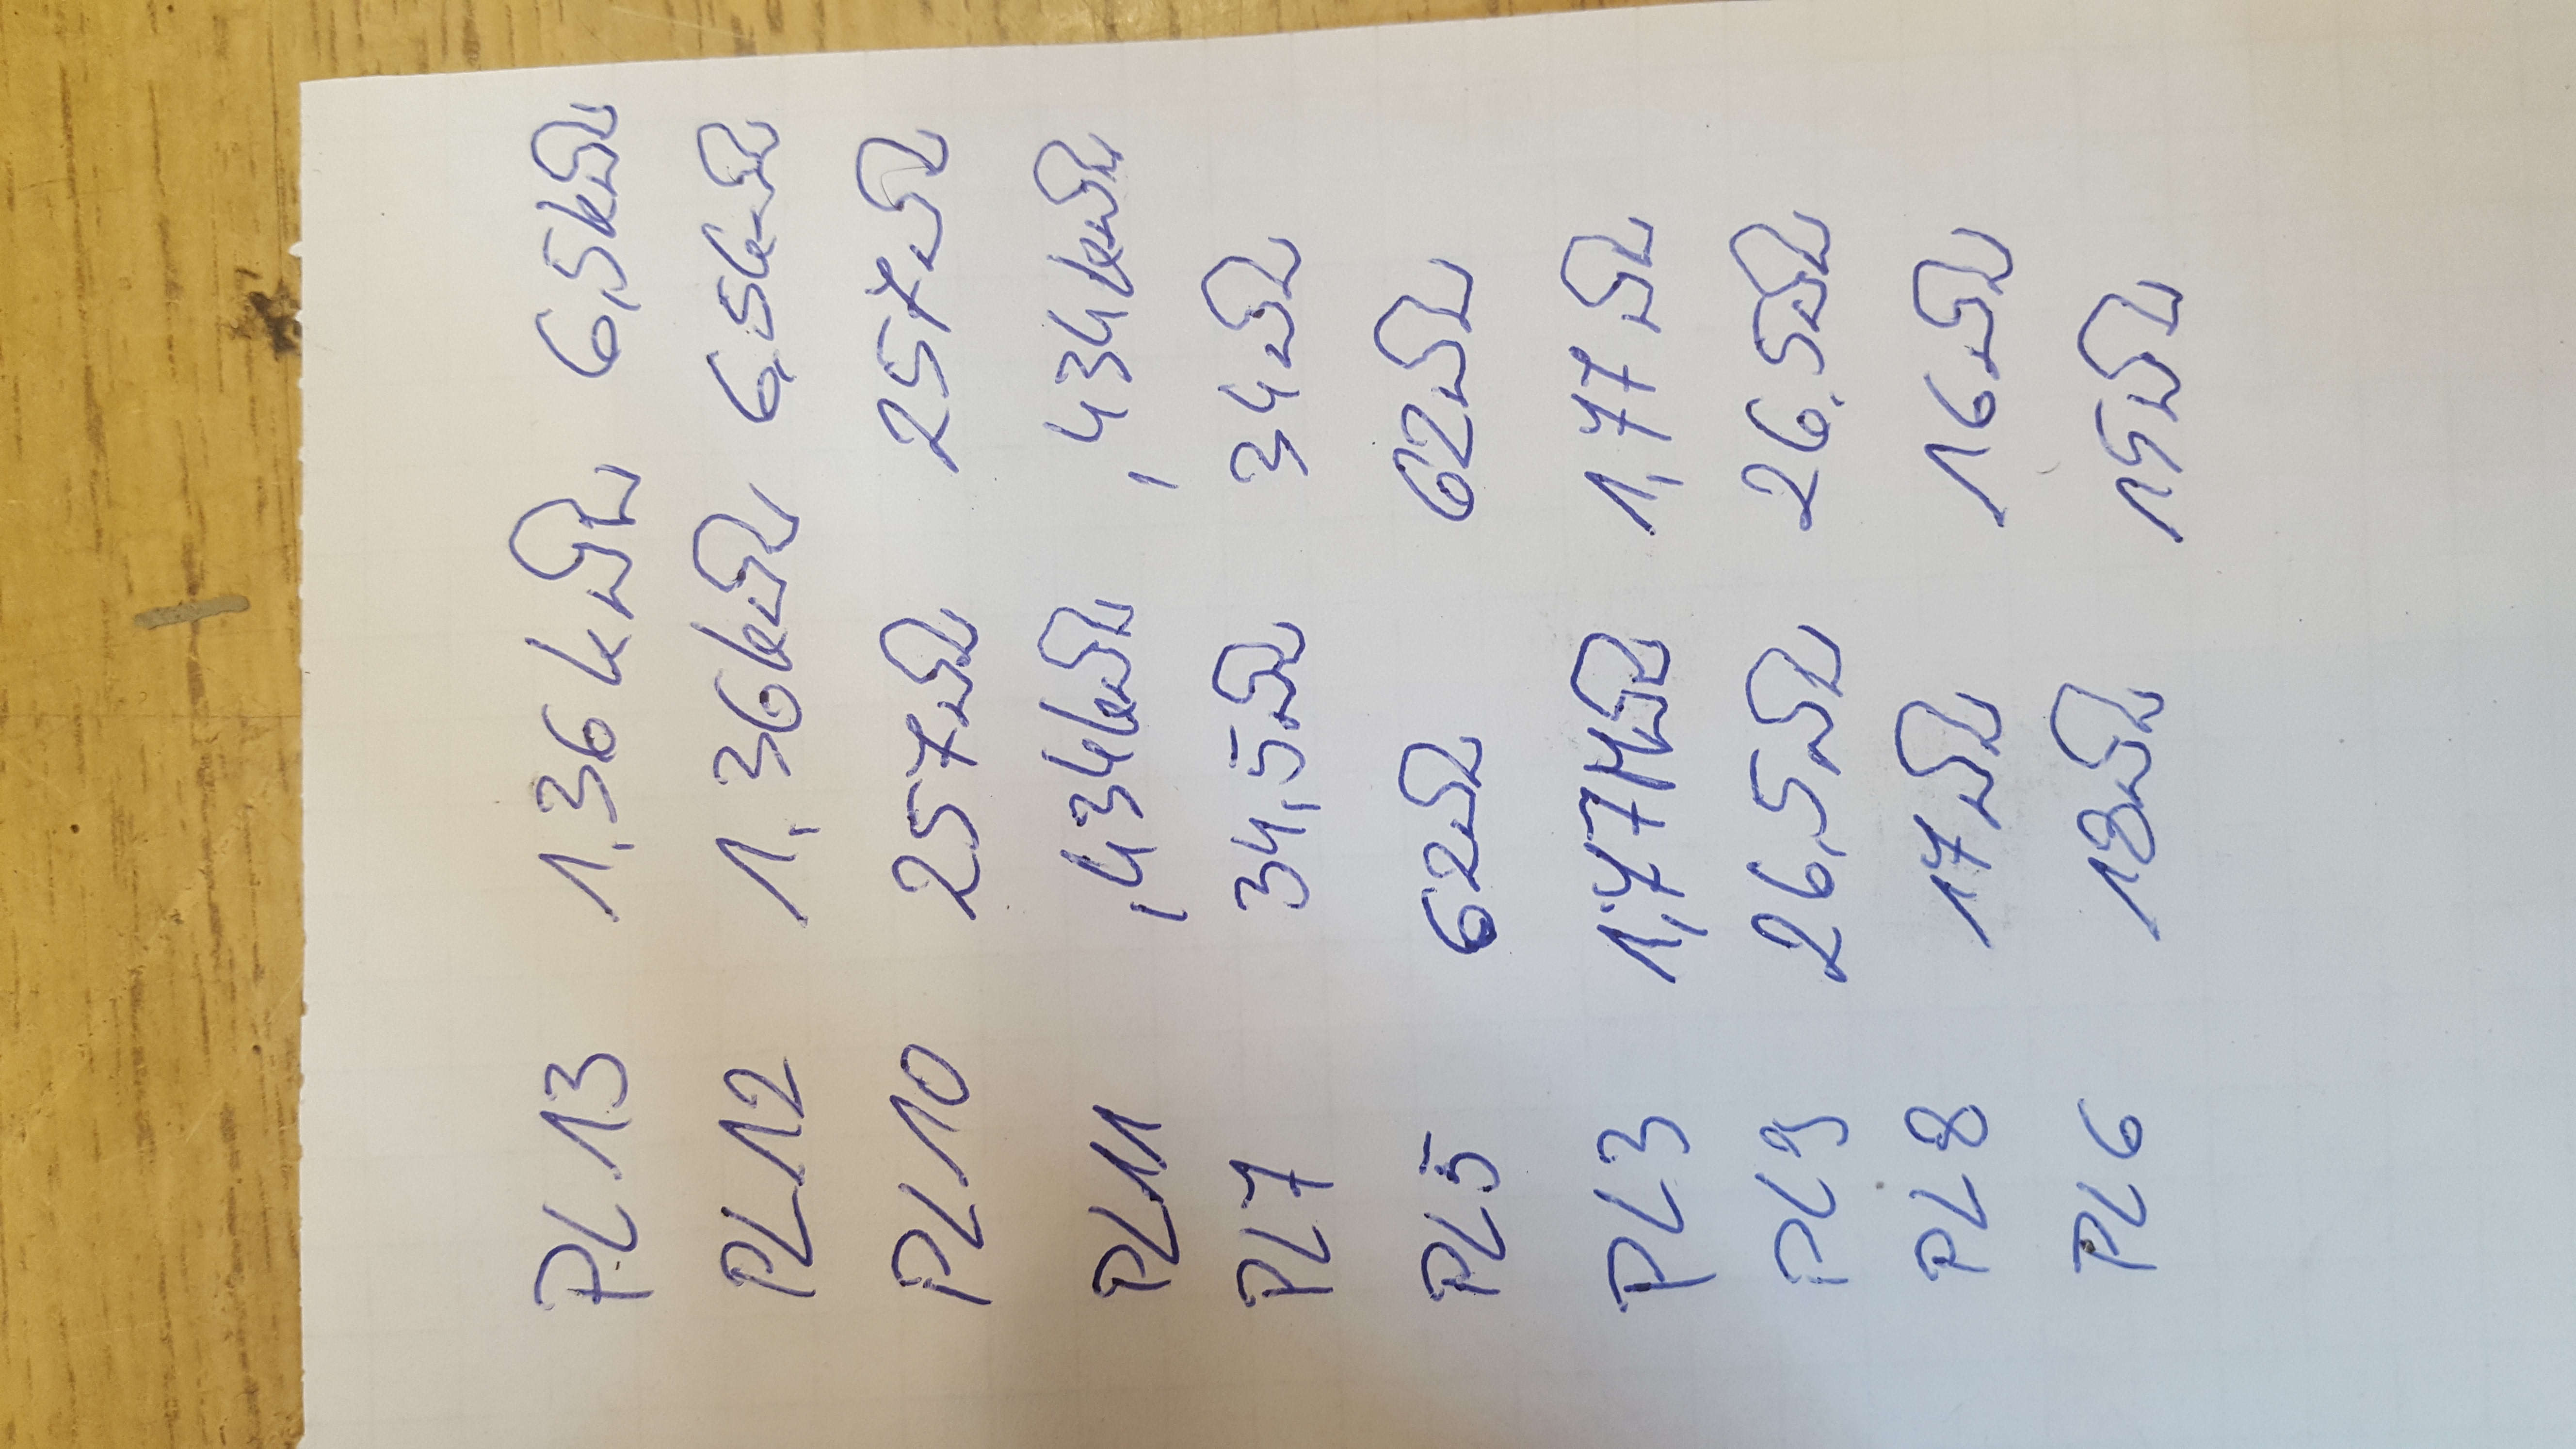 PL13 1,36kΩ 6,5kΩ
PL12 1,36kΩ 6,5kΩ
PL10 257Ω 257Ω
PL11 ,434kΩ ,434kΩ
PL7 34,5Ω 34Ω
PL5 62Ω 62Ω
PL3 1,77Ω 1,77Ω
PL9 26,5Ω 26,5Ω
PL8 17Ω 16Ω
PL6 18Ω 15Ω